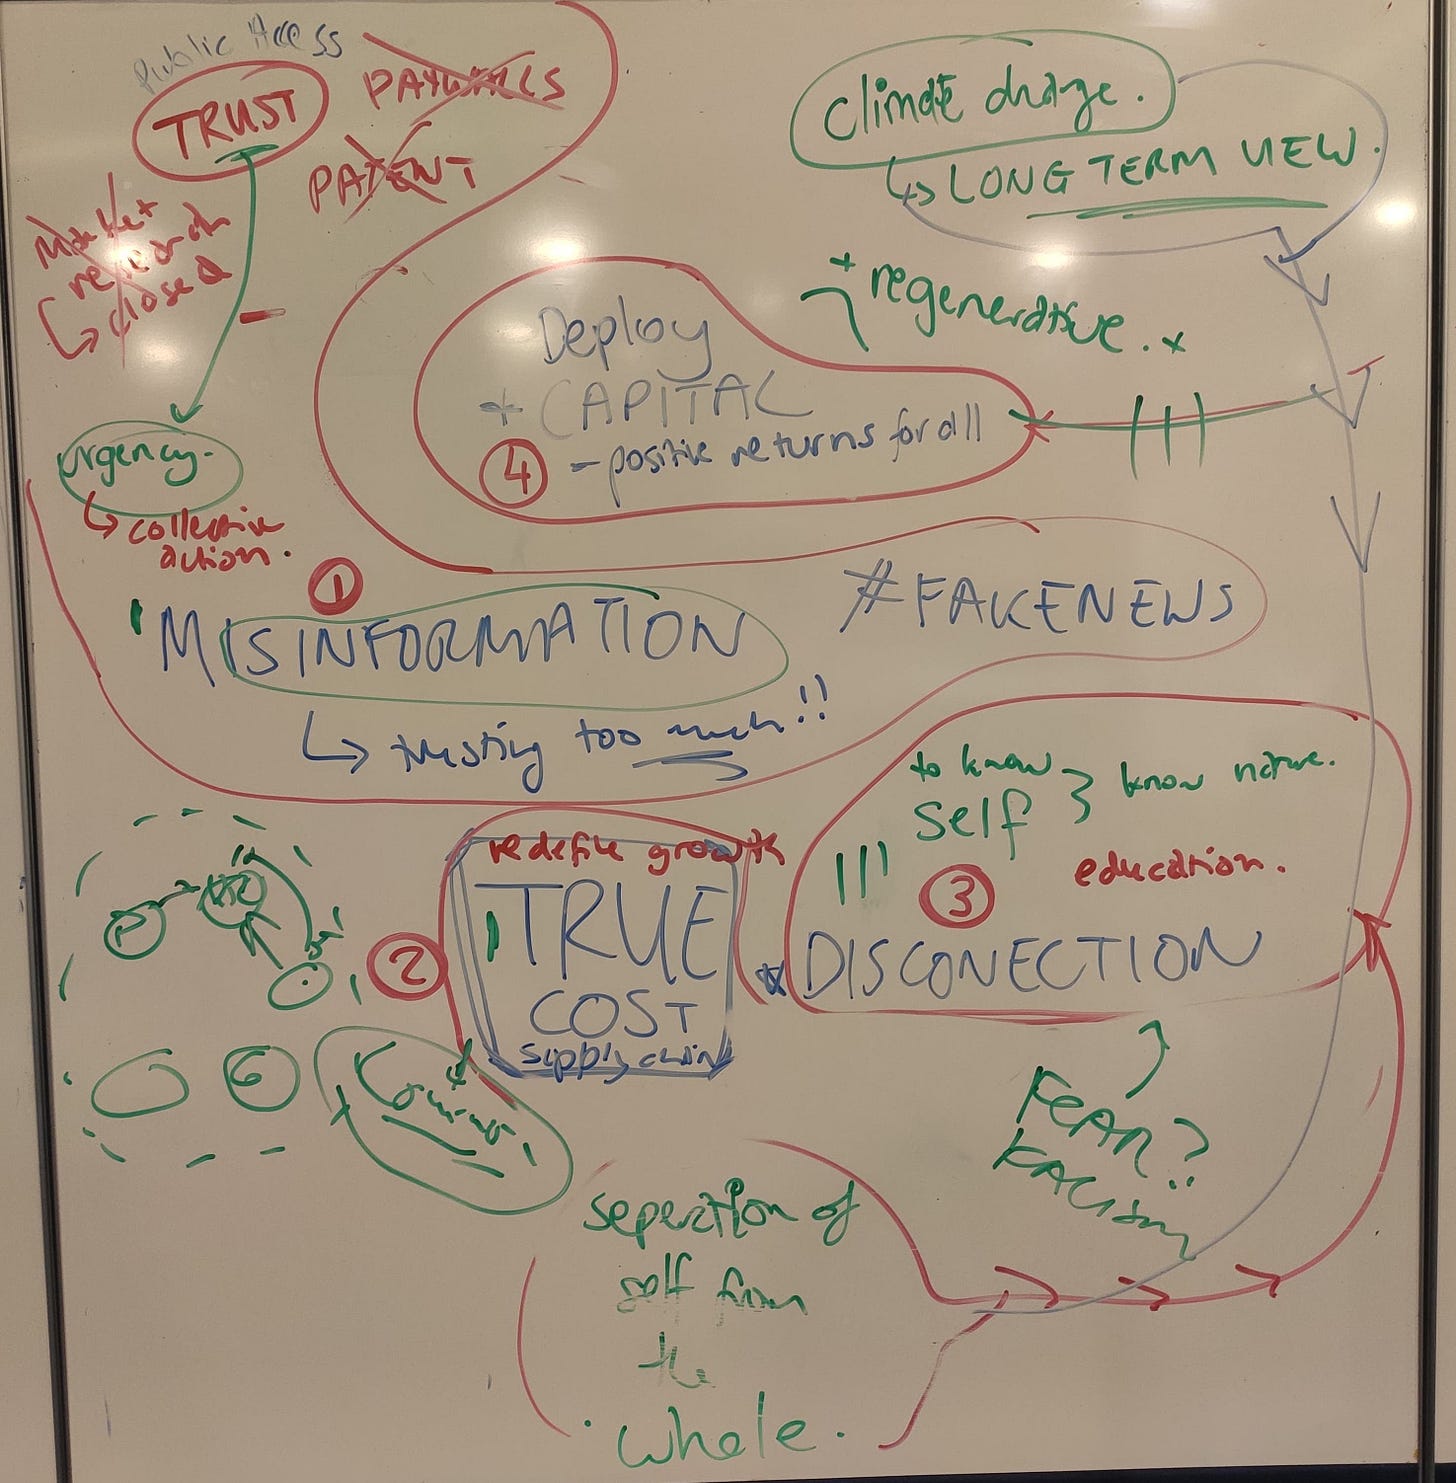 Public Access
TRUST
PAYWALLS
PATENT
Market
research
closed
urgency.
collective
action.
climate change.
LONG TERM VIEW.
+ regenerative. x
Deploy
+ CAPITAL
④ - positive returns for all
①
MISINFORMATION
#FAKENEWS
trusting too much!!
to know
self
know nature.
education.
③
DISCONECTION
redefine growth
②
TRUE
COST
supply chain
P
G
FEAR?
RACISM
seperation of
self from
the
whole.